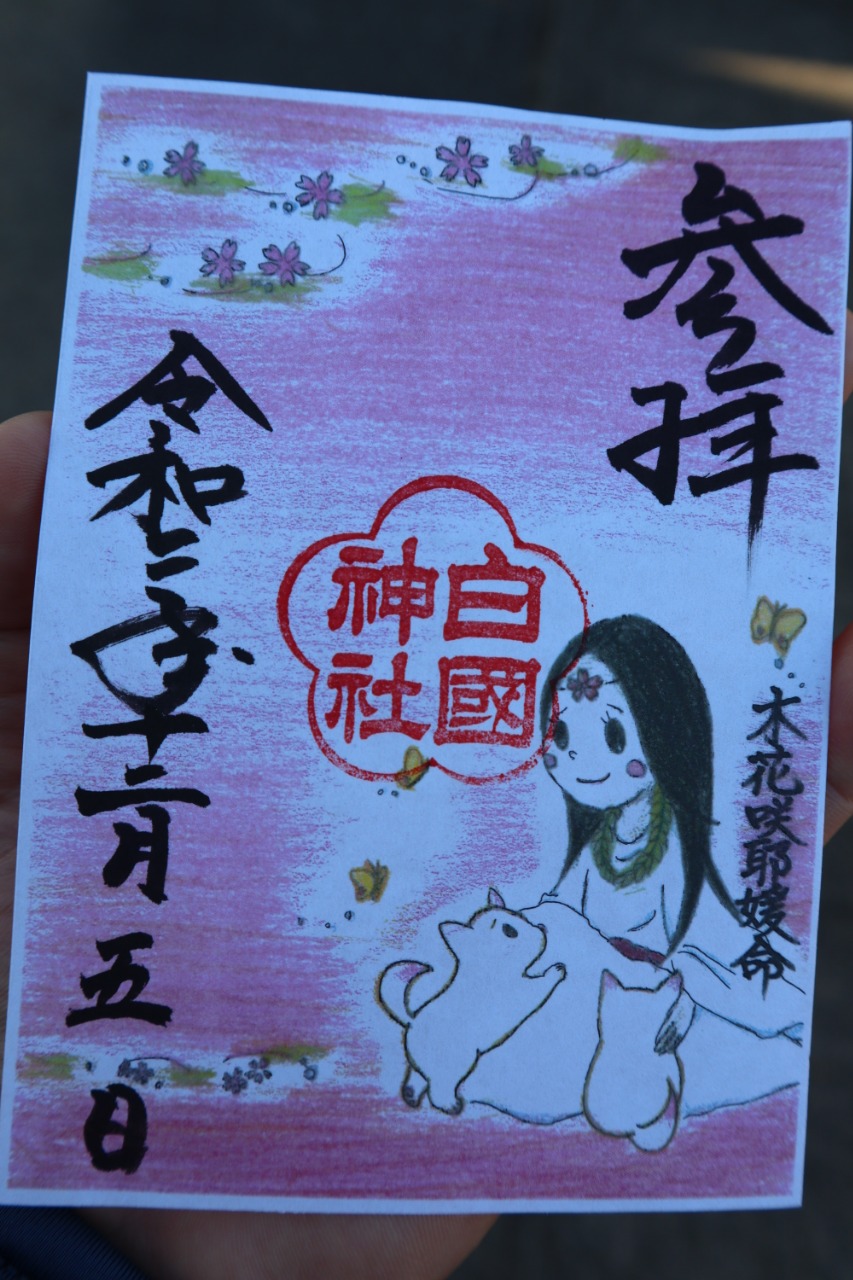 参拝
木花咲耶媛命
白國
神社
令和二年十二月五日